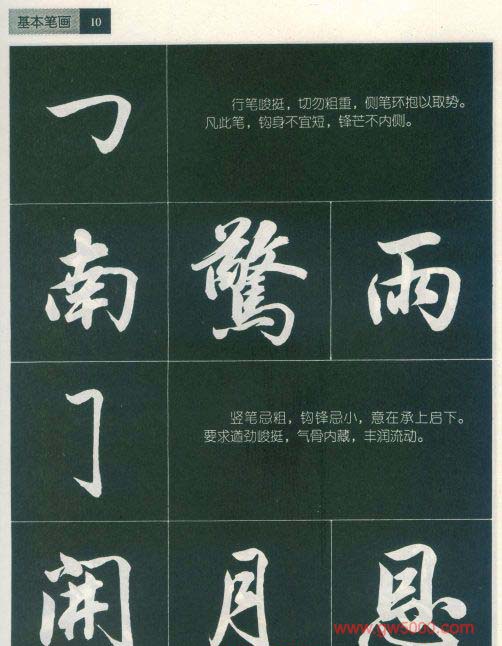 基本笔画 10
行笔峻挺，切勿粗重，侧笔环抱以取势。
凡此笔，钩身不宜短，锋芒不内侧。
南 驚 雨
竖笔忌粗，钩锋忌小，意在承上启下。
要求遒劲峻挺，气骨内藏，丰润流动。
開 月
www.gw5000.com